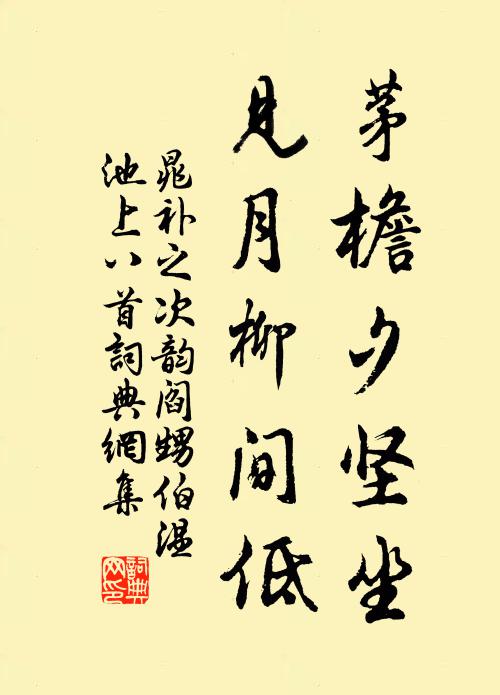 茅檐夕坚坐
见月柳间低
晁补之次韵阎甥伯温
池上八首詞典網集
詞典网印